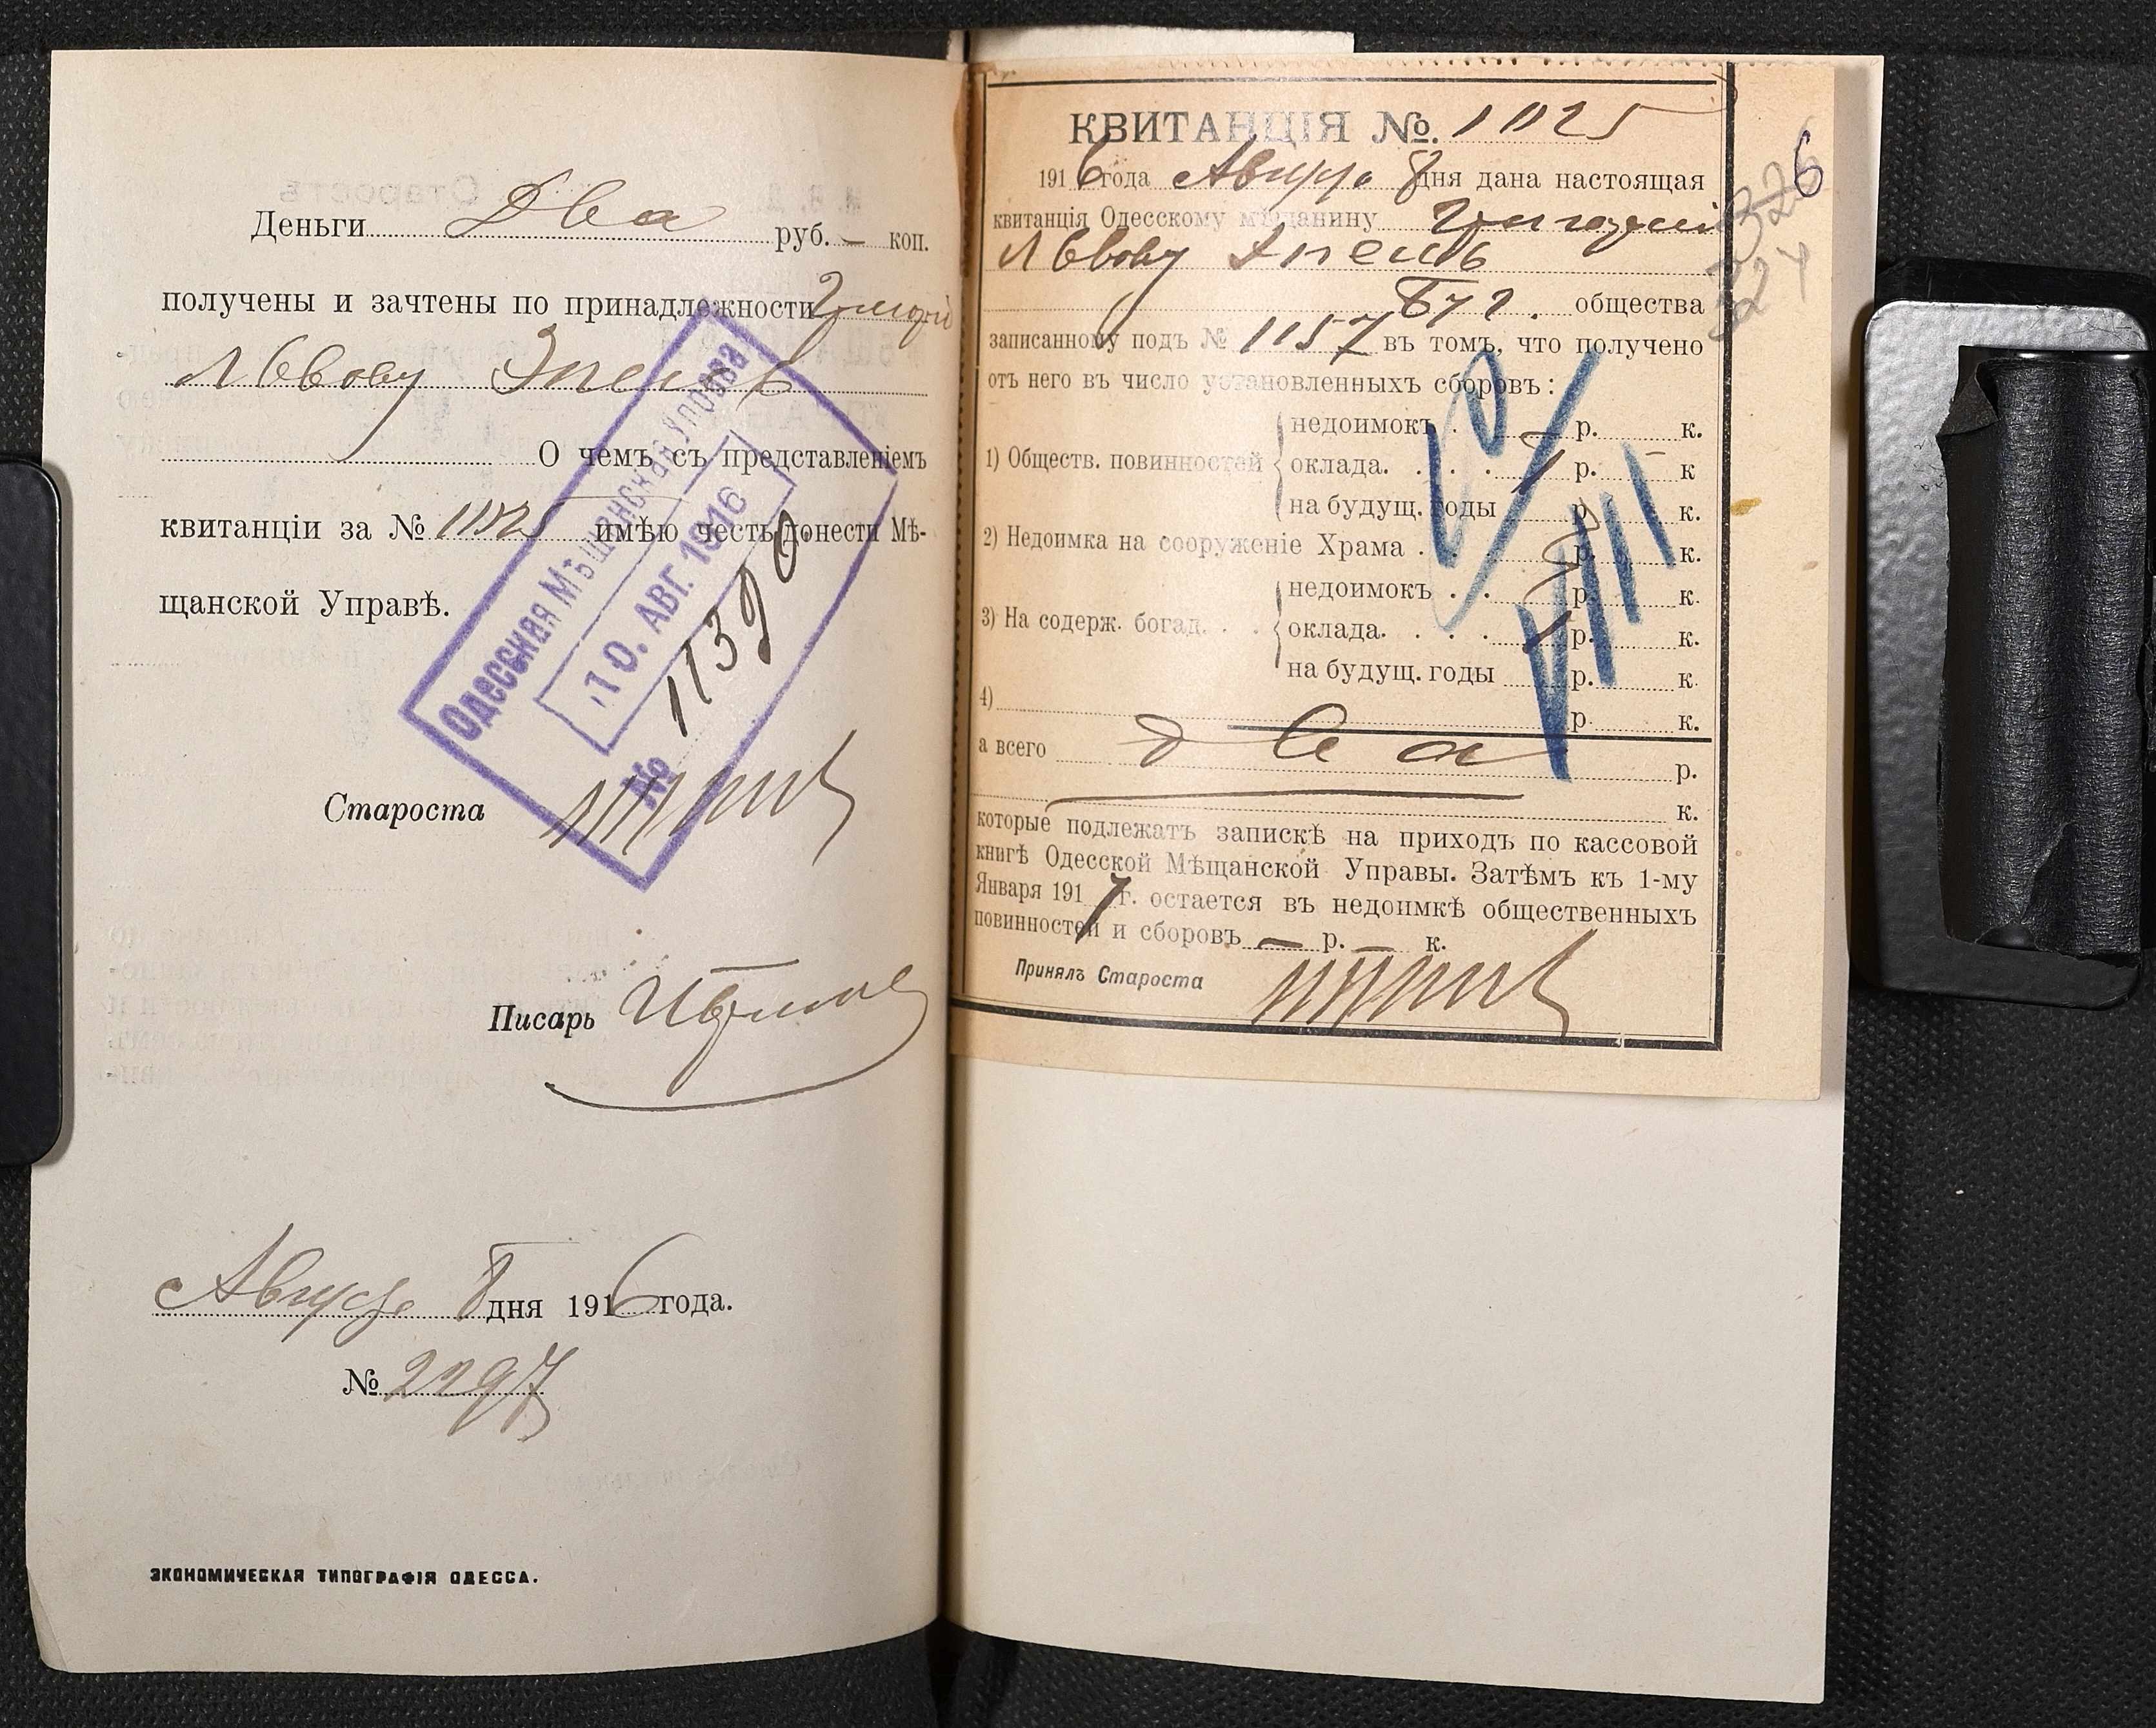 Деньги Два руб. – коп.
получены и зачтены по принадлежности
Львову
О чемъ съ представленіемъ
квитанціи за № имѣю честь донести Мѣ-
щанской Управѣ.
Одесская Мѣщанская Управа
10. АВГ. 1916
№ 11390
Староста
Писарь
Августа 8 дня 1916 года.
№ 2297
ЭКОНОМИЧЕСКАЯ ТИПОГРАФІЯ ОДЕССА.
КВИТАНЦІЯ №.
1916 года Августа 8 дня дана настоящая
квитанція Одесскому мѣщанину
Львову
Буг. общества
записанному подъ № 1157 въ томъ, что получено
отъ него въ число установленныхъ сборовъ:
1) Обществ. повинностей
недоимокъ . р. к.
оклада. . . . 1 р. – к
на будущ. годы р. к.
2) Недоимка на сооруженіе Храма . р. к.
3) На содерж. богад. . .
недоимокъ . . р. к.
оклада. . . . 1 р. к.
на будущ. годы р. к.
4) р. к.
а всего два р.
к.
которые подлежатъ запискѣ на приходъ по кассовой
книгѣ Одесской Мѣщанской Управы. Затѣмъ къ 1-му
Января 1917 г. остается въ недоимкѣ общественныхъ
повинностей и сборовъ – р. – к.
Принялъ Староста
VIII
6
326
324